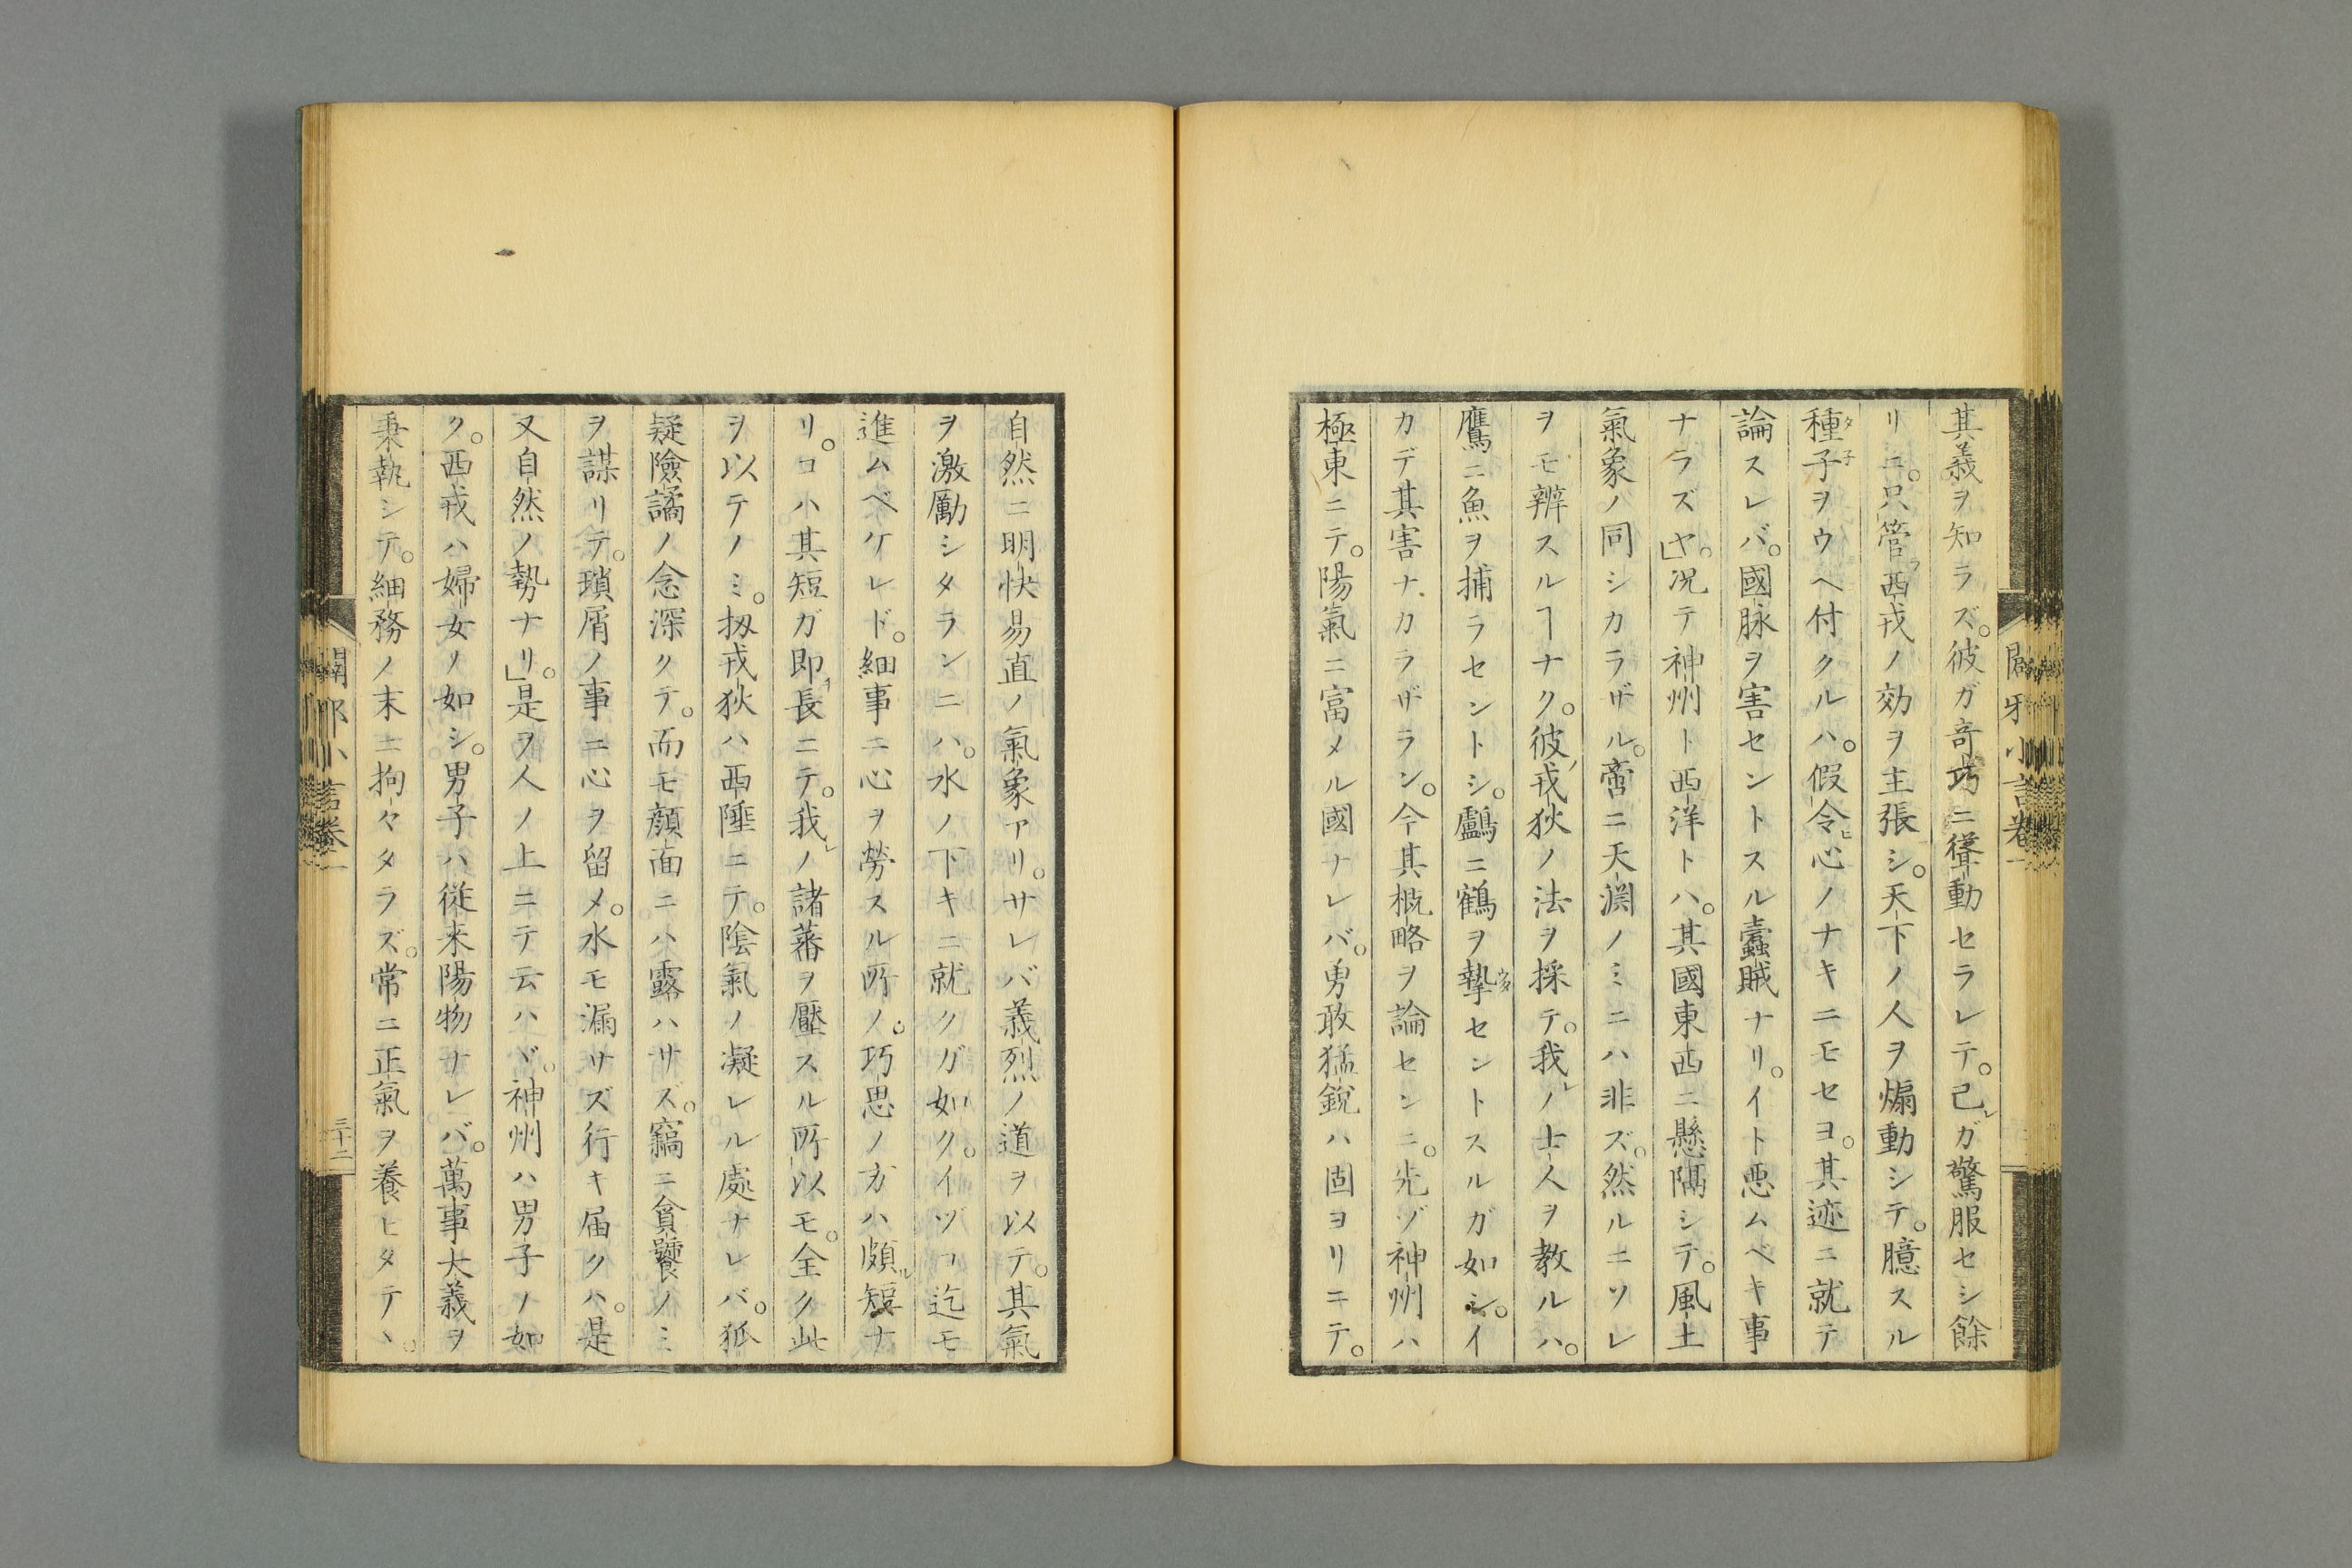 其義ヲ知ラズ。彼ガ奇巧ニ聳動セラレテ。己レガ驚服セシ餘
リニ。只管西戎ノ効ヲ主張シ。天下ノ人ヲ煽動シテ。臆スル
種子ヲウヘ付クルハ。假令ヒ心ノナキニモセヨ。其迹ニ就テ
論スレバ。國脉ヲ害セントスル蠹賊ナリ。イト悪ムベキ事
ナラズヤ。」况テ神州ト西洋トハ。其國東西ニ懸隔シテ。風土
氣象ノ同シカラザル。啻ニ天淵ノミニハ非ズ。然ルニソレ
ヲモ辨スルヿナク。彼ノ戎狄ノ法ヲ採テ。我レノ士人ヲ教ルハ。
鷹ニ魚ヲ捕ラセントシ。鸕ニ鶴ヲ摯セントスルガ如シ。イ
カデ其害ナカラザラン。今其概略ヲ論センニ。先ヅ神州ハ
極東ニテ。陽氣ニ富メル國ナレバ。勇敢猛銳ハ固ヨリニテ。
自然ニ明快易直ノ氣象アリ。サレバ義烈ノ道ヲ以テ。其氣
ヲ激勵シタランニハ。水ノ下キニ就クガ如ク。イヅコ迄モ
進ムベケレド。細事ニ心ヲ勞スル所ノ。巧思ノ方ハ頗ル短ナ
リ。コハ其短ガ即チ長ニテ。我レノ諸蕃ヲ壓スル所以モ。全ク此
ヲ以テノミ。扨戎狄ハ西陲ニテ。陰氣ノ凝レル處ナレバ。狐
疑險譎ノ念深クテ。而モ顔面ニハ露ハサズ。竊ニ貪饕ノミ
ヲ謀リテ。瑣屑ノ事ニ心ヲ留メ。水モ漏サズ行キ届クハ。是
又自然ノ勢ナリ。」是ヲ人ノ上ニテ云ハヾ。神州ハ男子ノ如
ク。西戎ハ婦女ノ如シ。男子ハ従来陽物ナレバ。萬事大義ヲ
秉執シテ。細務ノ末ニ拘々タラズ。常ニ正氣ヲ養ヒタテヽ。
闢邪小言卷一
三十二